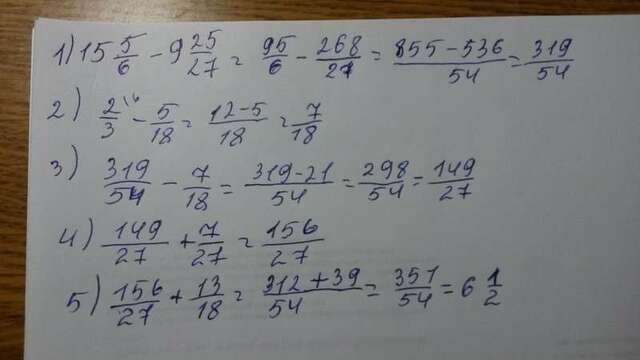 1) 15 5/6 - 9 25/27 = 95/6 - 268/27 = (855-536)/54 = 319/54
2) 2/3 \6 - 5/18 = (12-5)/18 = 7/18
3) 319/54 - 7/18 = (319-21)/54 = 298/54 = 149/27
4) 149/27 + 7/27 = 156/27
5) 156/27 + 13/18 = (312+39)/54 = 351/54 = 6 1/2